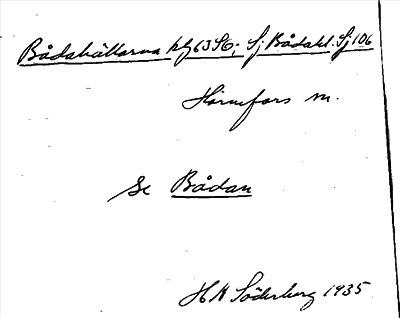 Bådahällarna kbl 63 SO; Sj. Bådahl. Sj 106
Hörnefors sn.
Se Bådan
H H Söderberg 1935